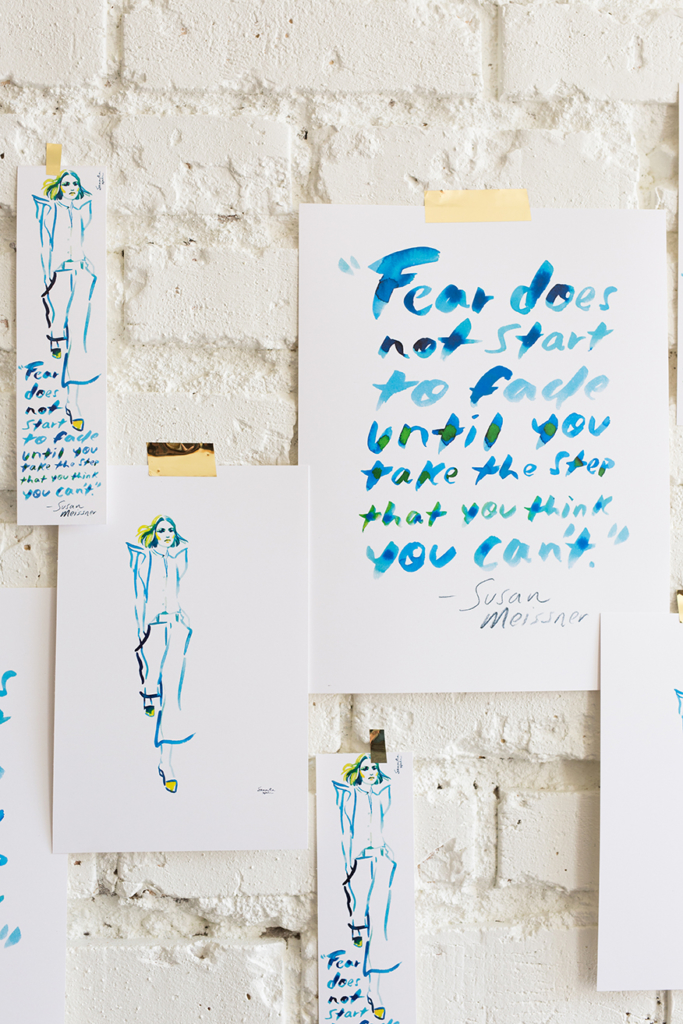 "Fear
does
not
start
to fade
until you
take the step
that you think
you can't."
- Susan
Meissner
"Fear does
not start
to fade
until you
take the step
that you think
you can't."
- Susan
Meissner
"Fear
does
not
start